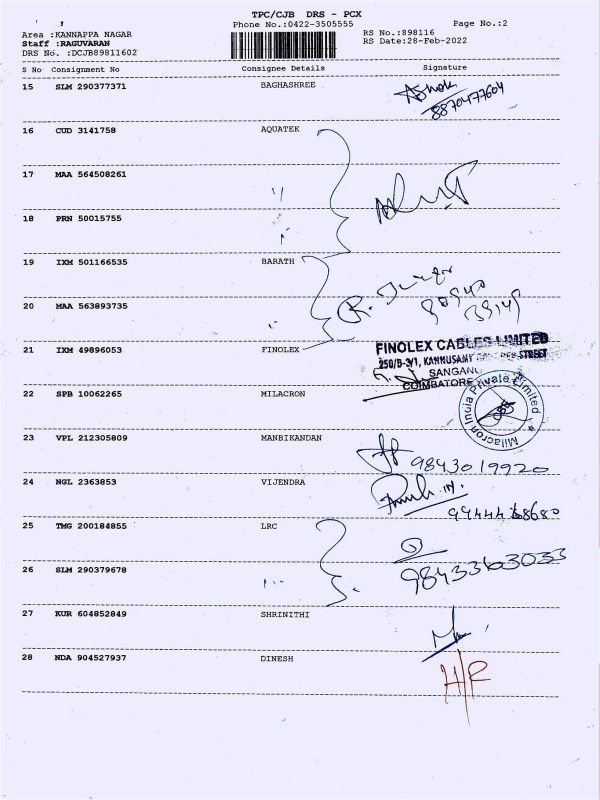 TPC/CJB DRS - PCX
Phone No.:0422-3505555 Page No.:2
Area :KANNAPPA NAGAR RS No.:898116
Staff :RAGUVARAN RS Date:28-Feb-2022
DRS No. :DCJB89811602
S No Consignment No Consignee Details Signature
15 SLM 290377371 BAGHASHREE Ashok
8870477604
16 CUD 3141758 AQUATEK
17 MAA 564508261
18 PRN 50015755
19 IXM 501166535 BARATH
20 MAA 563893735
21 IXM 49896053 FINOLEX FINOLEX CABLES LIMITED
250/B-3/1, STREET
COIMBATORE
22 SPB 10062265 MILACRON Milacron India Private Limited
23 VPL 212305809 MANBIKANDAN
9843019920
24 NGL 2363853 VIJENDRA
25 TMG 200184855 LRC
26 SLM 290379678
27 KUR 604852849 SHRINITHI
28 NDA 904527937 DINESH
H/R